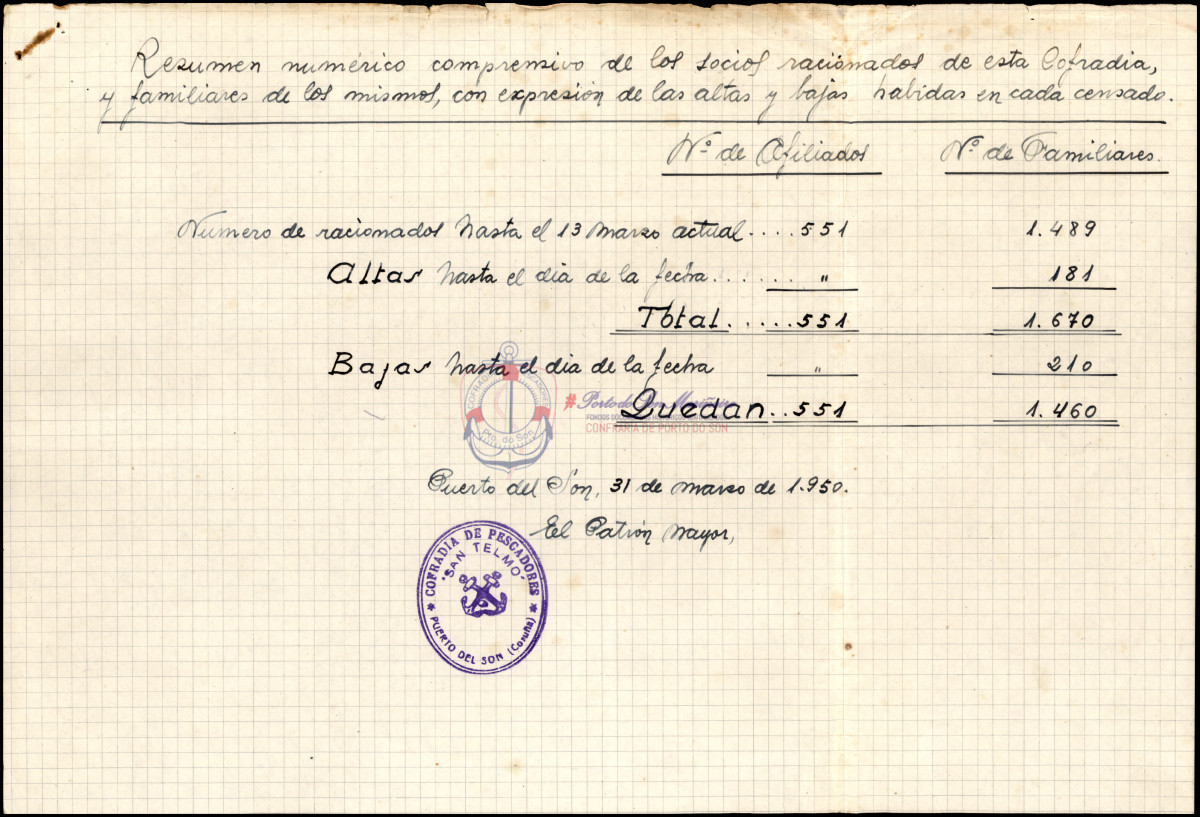 Resumen numérico comprensivo de los socios racionados de esta Cofradia,
y familiares de los mismos, con expresión de las altas y bajas habidas en cada censado.
Nº de Afiliados Nº de Familiares.
Numero de racionados hasta el 13 marzo actual....551 1.489
Altas hasta el dia de la fecha...... " 181
Total.....551 1.670
Bajas hasta el dia de la fecha " 210
Quedan..551 1.460
COFRADIA
Pto. do Son
#Porto do Son Mariñeiro
CONFRARÍA DE PORTO DO SON
Puerto del Son, 31 de marzo de 1.950.
El Patrón Mayor,
* COFRADIA DE PESCADORES *
"SAN TELMO"
PUERTO DEL SON (Coruña)